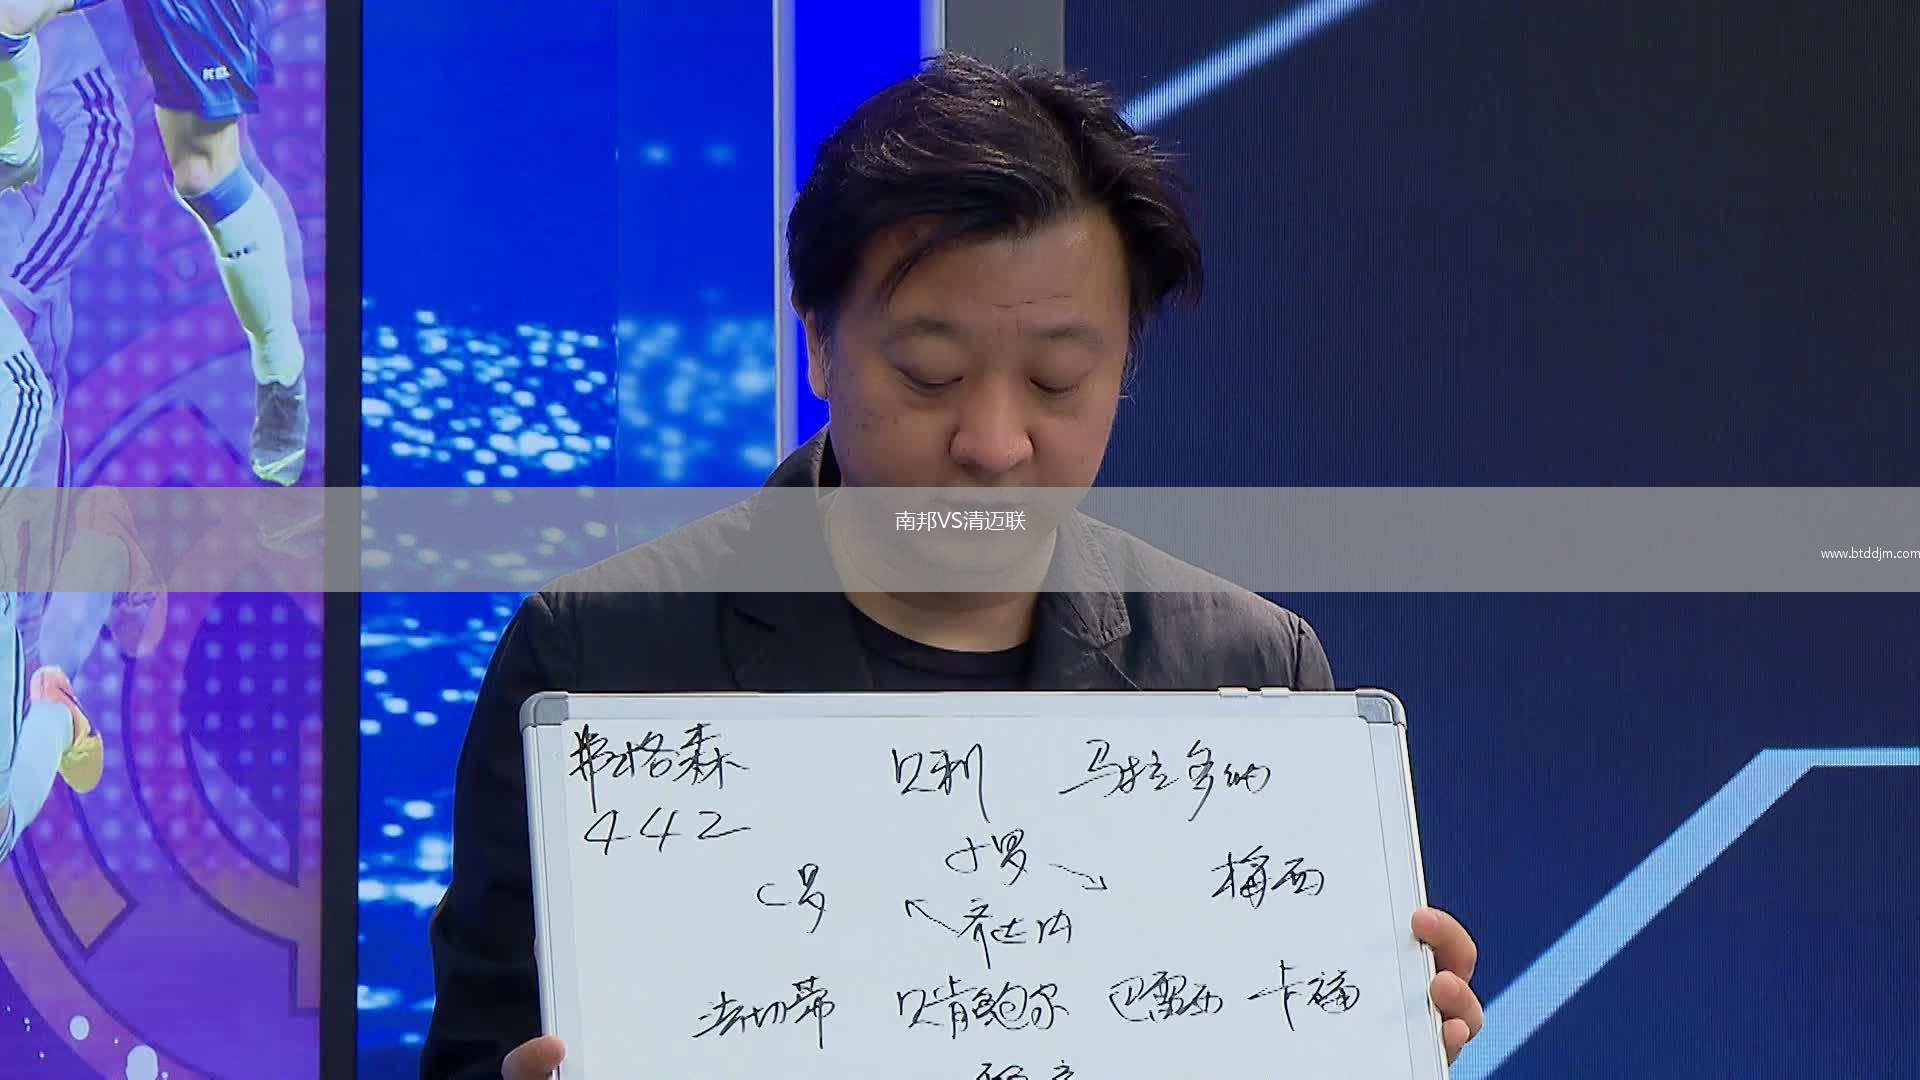 KE
南邦VS清迈联
www.btddjm.com
弗格森 贝利 马拉多纳
442
小罗
C罗 梅西
齐达内
法切蒂 贝肯鲍尔 巴雷西 卡福